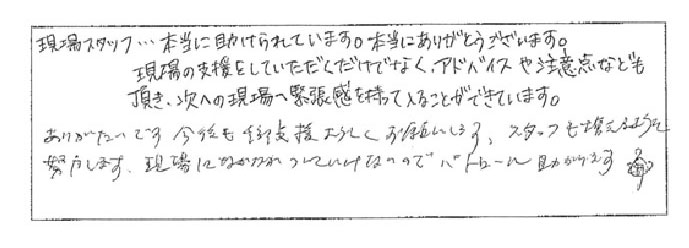 現場スタッフ…本当に助けられています。本当にありがとうございます。
現場の支援をしていただくだけでなく、アドバイスや注意点なども
頂き、次への現場へ緊張感を持って入ることができています。
ありがたいです 今後も 支援よろしくお願いします、スタッフも増えるよう
努力します、現場になかなか っていけないのでパトロール助かります